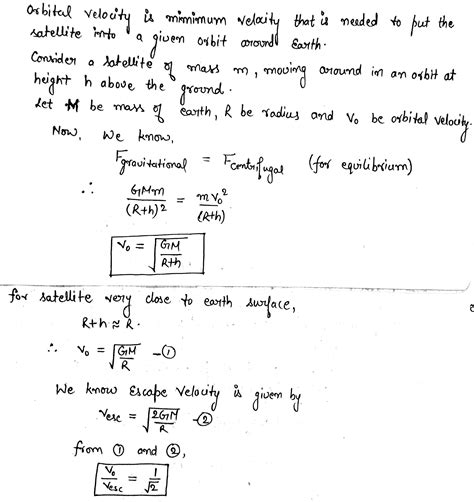 Orbital velocity is minimum velocity that is needed to put the
satellite into a given orbit around Earth.
Consider a satellite of mass m, moving around in an orbit at
height h above the ground.
Let M be mass of earth, R be radius and V₀ be orbital velocity.
Now, we know,
F gravitational = F centrifugal (for equilibrium)
∴ GMm/(R+h)² = mv₀²/(R+h)
V₀ = √(GM/(R+h))
for satellite very close to earth surface,
R+h ≈ R.
∴ V₀ = √(GM/R) –①
We know Escape Velocity is given by
Vesc = √(2GM/R) –②
from ① and ②,
V₀/Vesc = 1/√2